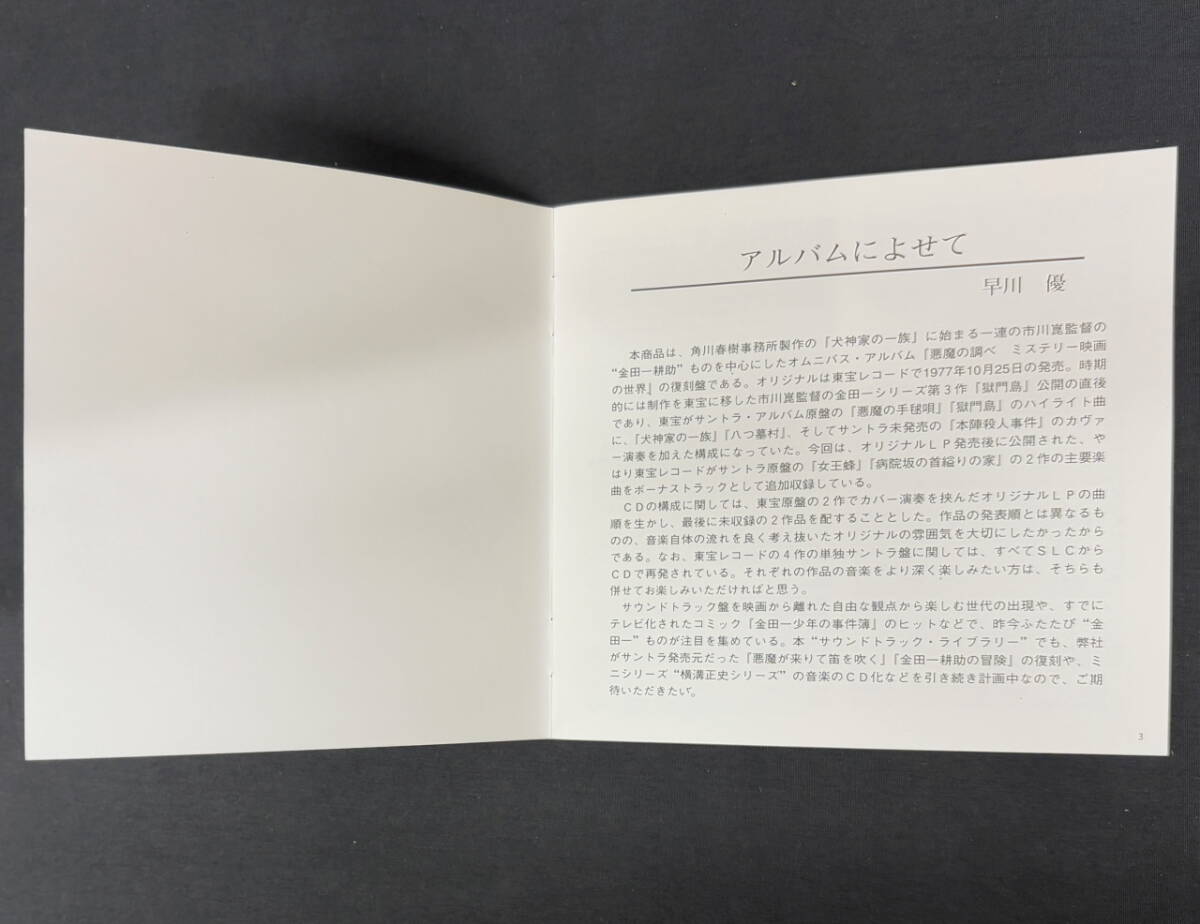 アルバムによせて
早川 優
本商品は、角川春樹事務所製作の『犬神家の一族』に始まる一連の市川崑監督の
“金田一耕助”ものを中心にしたオムニバス・アルバム『悪魔の調べ ミステリー映画
の世界』の復刻盤である。オリジナルは東宝レコードで1977年10月25日の発売。時期
的には制作を東宝に移した市川崑監督の金田一シリーズ第3作『獄門島』公開の直後
であり、東宝がサントラ・アルバム原盤の『悪魔の手毬唄』『獄門島』のハイライト曲
に、『犬神家の一族』『八つ墓村』、そしてサントラ未発売の『本陣殺人事件』のカヴァ
ー演奏を加えた構成になっていた。今回は、オリジナルLP発売後に公開された、や
はり東宝レコードがサントラ原盤の『女王蜂』『病院坂の首縊りの家』の2作の主要楽
曲をボーナストラックとして追加収録している。
CDの構成に関しては、東宝原盤の2作でカバー演奏を挟んだオリジナルLPの曲
順を生かし、最後に未収録の2作品を配することとした。作品の発表順とは異なるも
のの、音楽自体の流れを良く考え抜いたオリジナルの雰囲気を大切にしたかったから
である。なお、東宝レコードの4作の単独サントラ盤に関しては、すべてSLCから
CDで再発されている。それぞれの作品の音楽をより深く楽しみたい方は、そちらも
併せてお楽しみいただければと思う。
サウンドトラック盤を映画から離れた自由な観点から楽しむ世代の出現や、すでに
テレビ化されたコミック『金田一少年の事件簿』のヒットなどで、昨今ふたたび“金
田一”ものが注目を集めている。本“サウンドトラック・ライブラリー”でも、弊社
がサントラ発売元だった『悪魔が来りて笛を吹く』『金田一耕助の冒険』の復刻や、ミ
ニシリーズ“横溝正史シリーズ”の音楽のCD化などを引き続き計画中なので、ご期
待いただきたい。
3